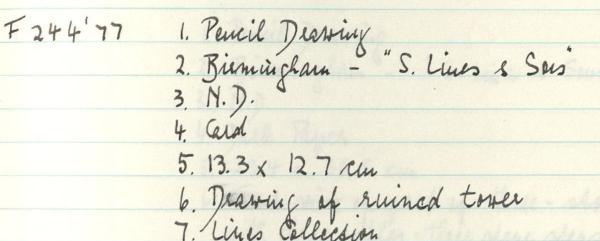 F 244'77 1. Pencil Drawing
2. Birmingham - "S. Lines & Sons"
3. N.D.
4. Card
5. 13.3 x 12.7 cm
6. Drawing of ruined tower
7. Lines Collection